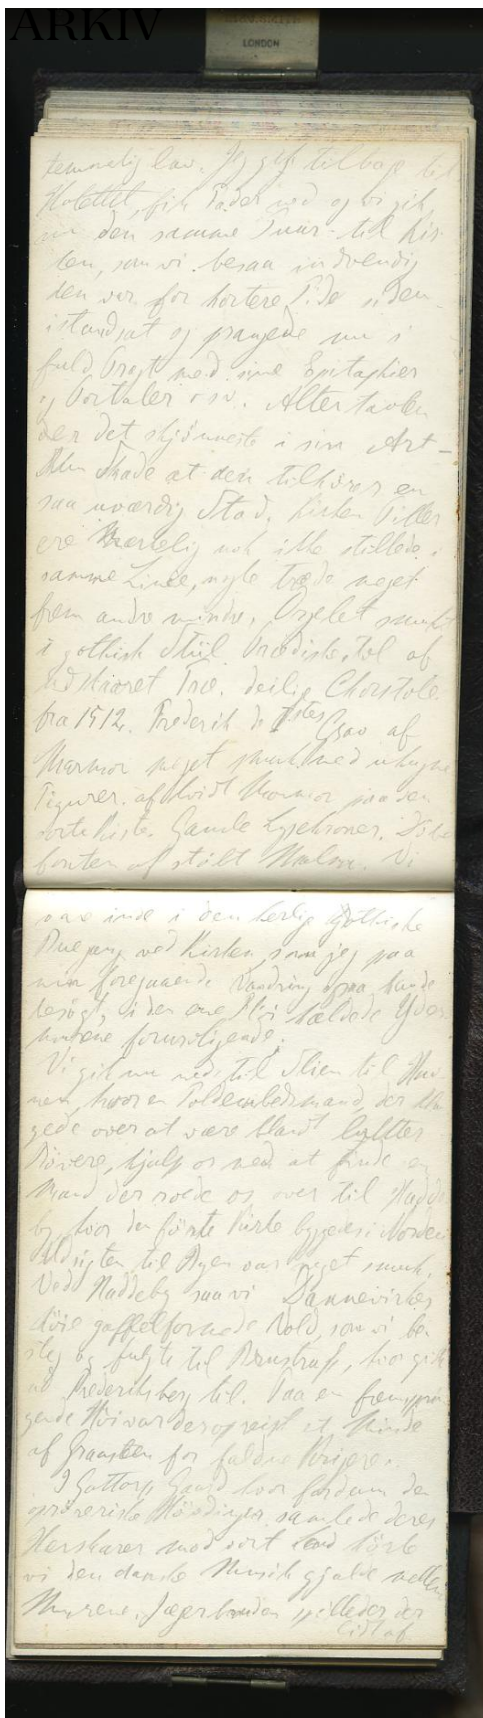 ARKIV
LONDON
temmelig lav. Jeg gik tilbage til
Hotellet, fik Fader med og vi gik
nu den samme Tuur - til Kir-
ken, som vi besaa indvendig
den var for kortere Tide siden
istandsat og prangede nu i
fuld Pragt med sine Epitaphier
og Portaler osv. Altertavlen
er det skjönneste i sin Art -
Men Skade at den tilhører en
saa uværdig Stad. Kirken Piller
ere Mærkelig nok ikke stillede i
samme Linie, nogle træde noget
frem andre mindre. Orgelet smukt
i gothisk Stiil. Prædikestol af
udskaaret Træ. deilige Chorstole
fra 1512. Frederik d. Istes Grav af
Marmor meget smuk med
Figurer af hvidt Marmor paa den
sorte Kiste. Gamle Lysekroner. Döbe
fonten af støbt Malm. Vi
vare inde i den herlige gothiske
Buegang ved Kirken, som jeg paa
min foregaaende Vandring ogsaa havde
besøgt, i den ene Flöi hældede Yder-
murene foruroligende.
Vi gik nu ned til Slien til Hav-
nen, hvor en Toldembedsmand, der kla
gede over at være blandt
Rövere, hjalp os med at finde en
Mand der roede os over til Hadde
by, hvor den første Kirke byggedes i Norden
Udsigten til Byen var meget smuk.
Ved Haddeby saa vi Dannevirkes
høie gaffelformede Vold, som vi be
steg og fulgte til Bustrup, hvor gik
ad Frederiksberg til. Paa en fremsprin
gende Höi var der opreist et Minde
af Graasten for faldne Krigere.
I Gottorp Gaard hvor fordum de
oprörerische Hövdinger samlede deres
Herskarer mod vort Land hörte
vi den danske Musik gjalde mellem
Murene. Jægerbanden spillede der